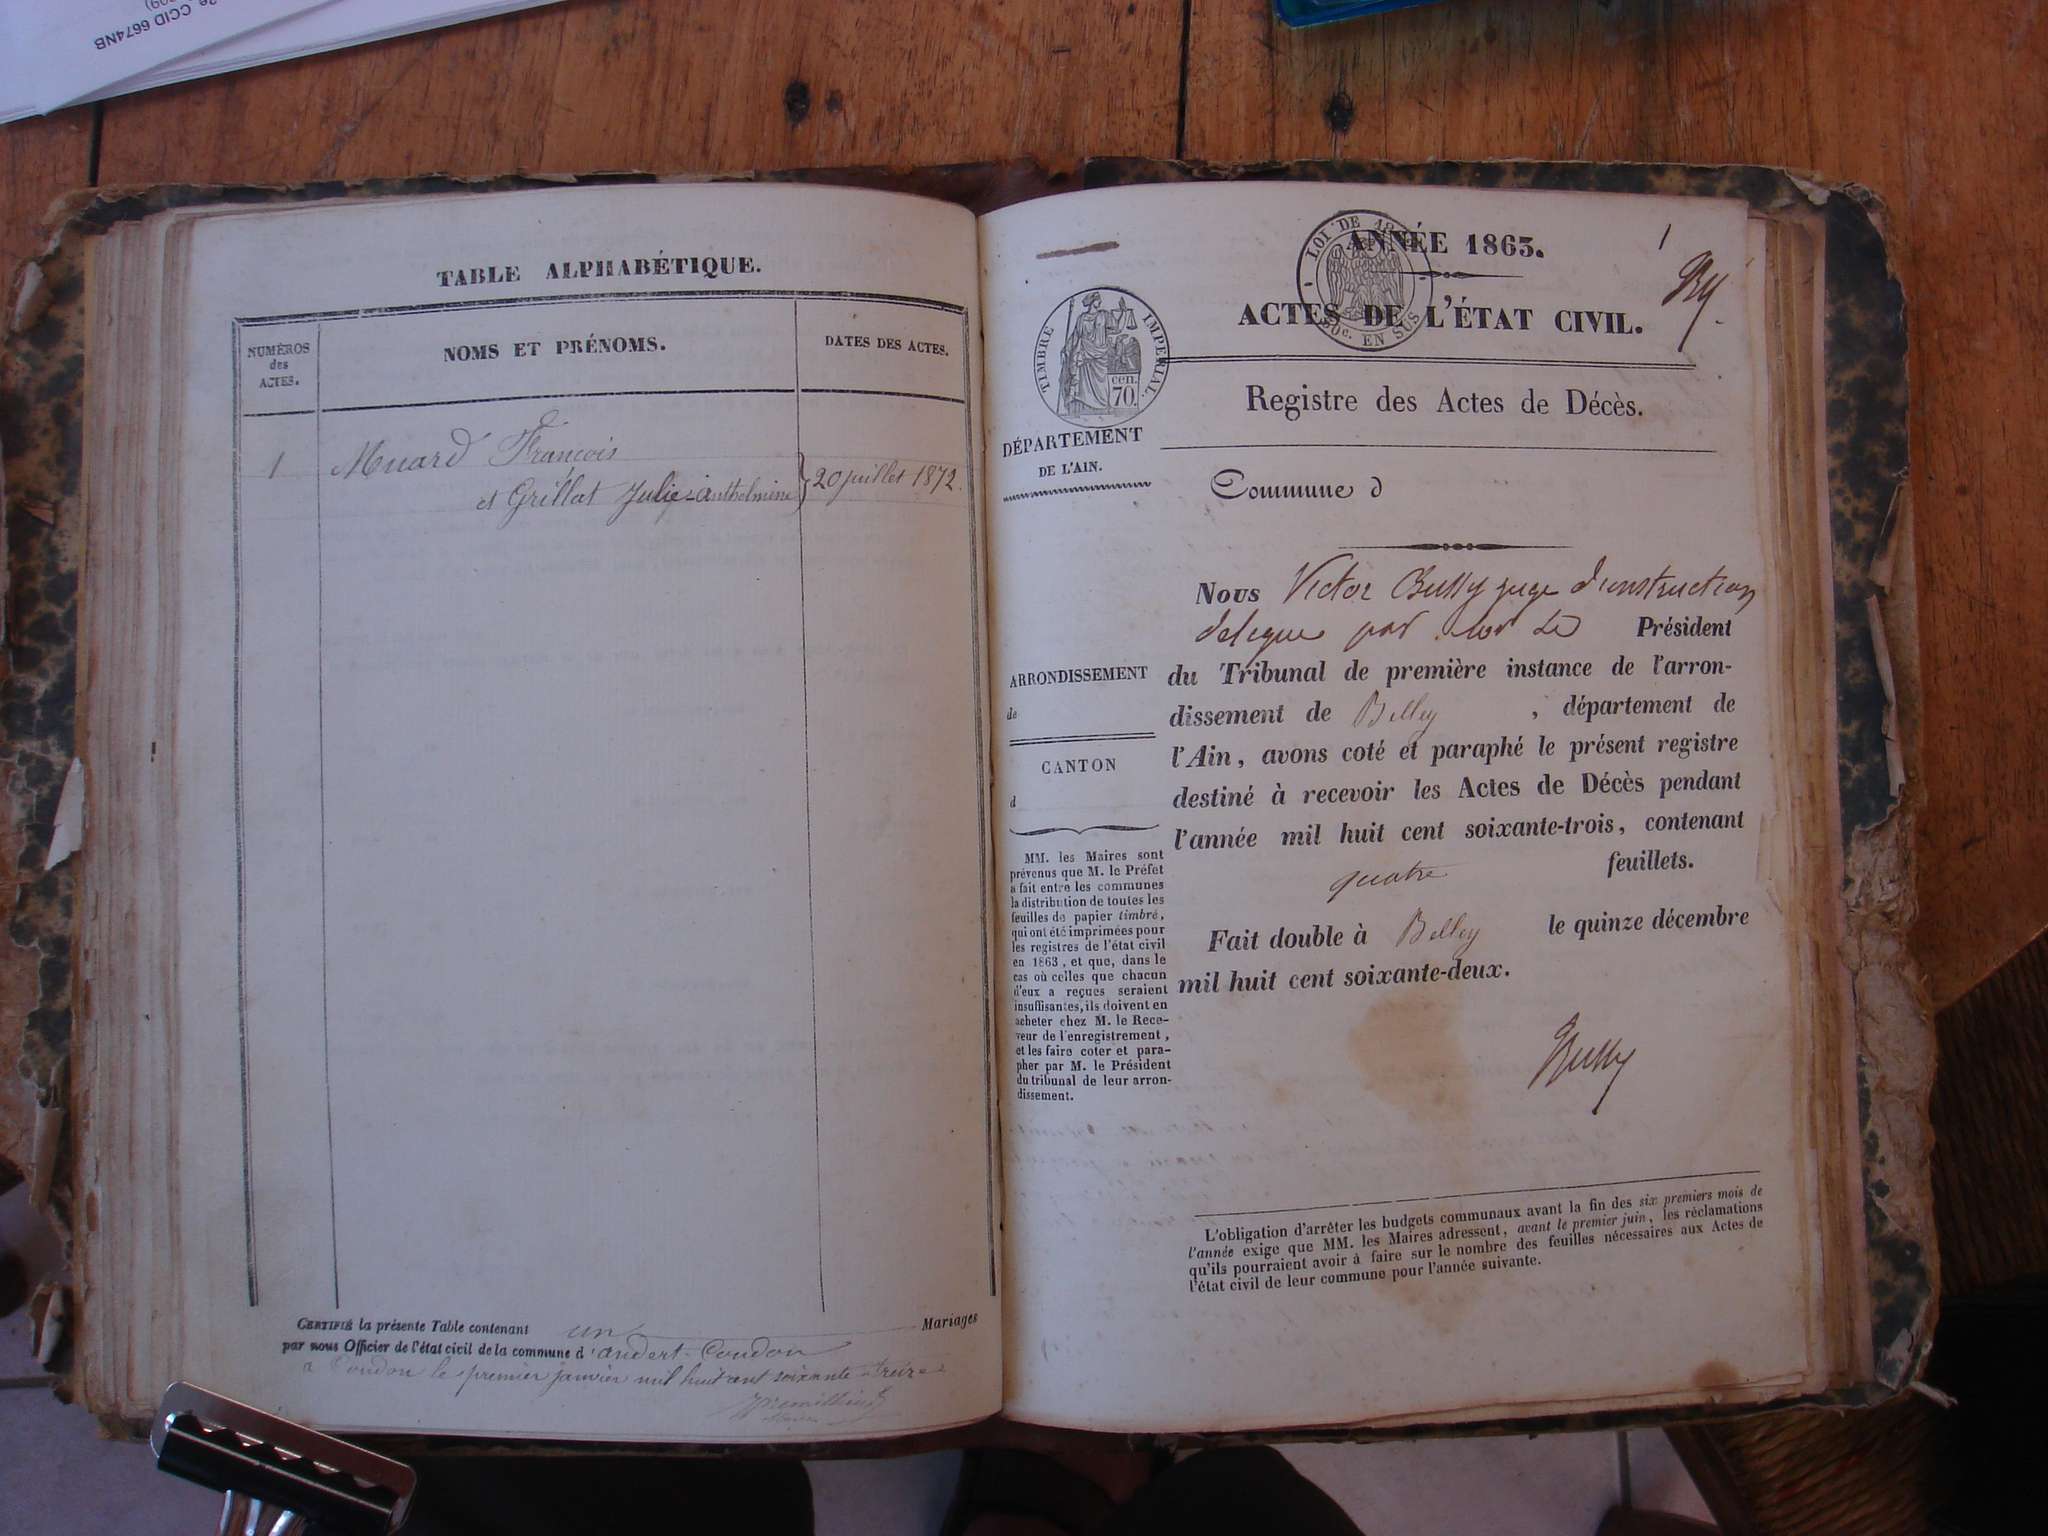 CCID 6674NB
TABLE ALPHABÉTIQUE.
NUMÉROS
des
ACTES.
NOMS ET PRÉNOMS.
DATES DES ACTES.
1
Muard François
et Grillat Julie-Anthelmine
20 juillet 1872.
CERTIFIÉ la présente Table contenant un Mariages
par nous Officier de l'état civil de la commune d'andert-Coudon
a Coudon le premier janvier mil huit cent soixante-treize
ANNÉE 1863.
1
LOI DE
EN SUS
ACTES DE L'ÉTAT CIVIL.
TIMBRE IMPERIAL.
cen.
70.
Registre des Actes de Décès.
DÉPARTEMENT
DE L'AIN.
Commune d
Nous Victor Bussy juge d'instruction
delegue par Président
du Tribunal de première instance de l'arron-
dissement de Belley, département de
l'Ain, avons coté et paraphé le présent registre
destiné à recevoir les Actes de Décès pendant
l'année mil huit cent soixante-trois, contenant
quatre feuillets.
Fait double à Belley le quinze décembre
mil huit cent soixante-deux.
Bussy
ARRONDISSEMENT
de
CANTON
d
MM. les Maires sont
prévenus que M. le Préfet
a fait entre les communes
la distribution de toutes les
feuilles de papier timbré,
qui ont été imprimées pour
les registres de l'état civil
en 1863, et que, dans le
cas où celles que chacun
d'eux a reçues seraient
insuffisantes, ils doivent en
acheter chez M. le Rece-
veur de l'enregistrement,
et les faire coter et para-
pher par M. le Président
du tribunal de leur arron-
dissement.
L'obligation d'arrêter les budgets communaux avant la fin des six premiers mois de
l'année exige que MM. les Maires adressent, avant le premier juin, les réclamations
qu'ils pourraient avoir à faire sur le nombre des feuilles nécessaires aux Actes de
l'état civil de leur commune pour l'année suivante.